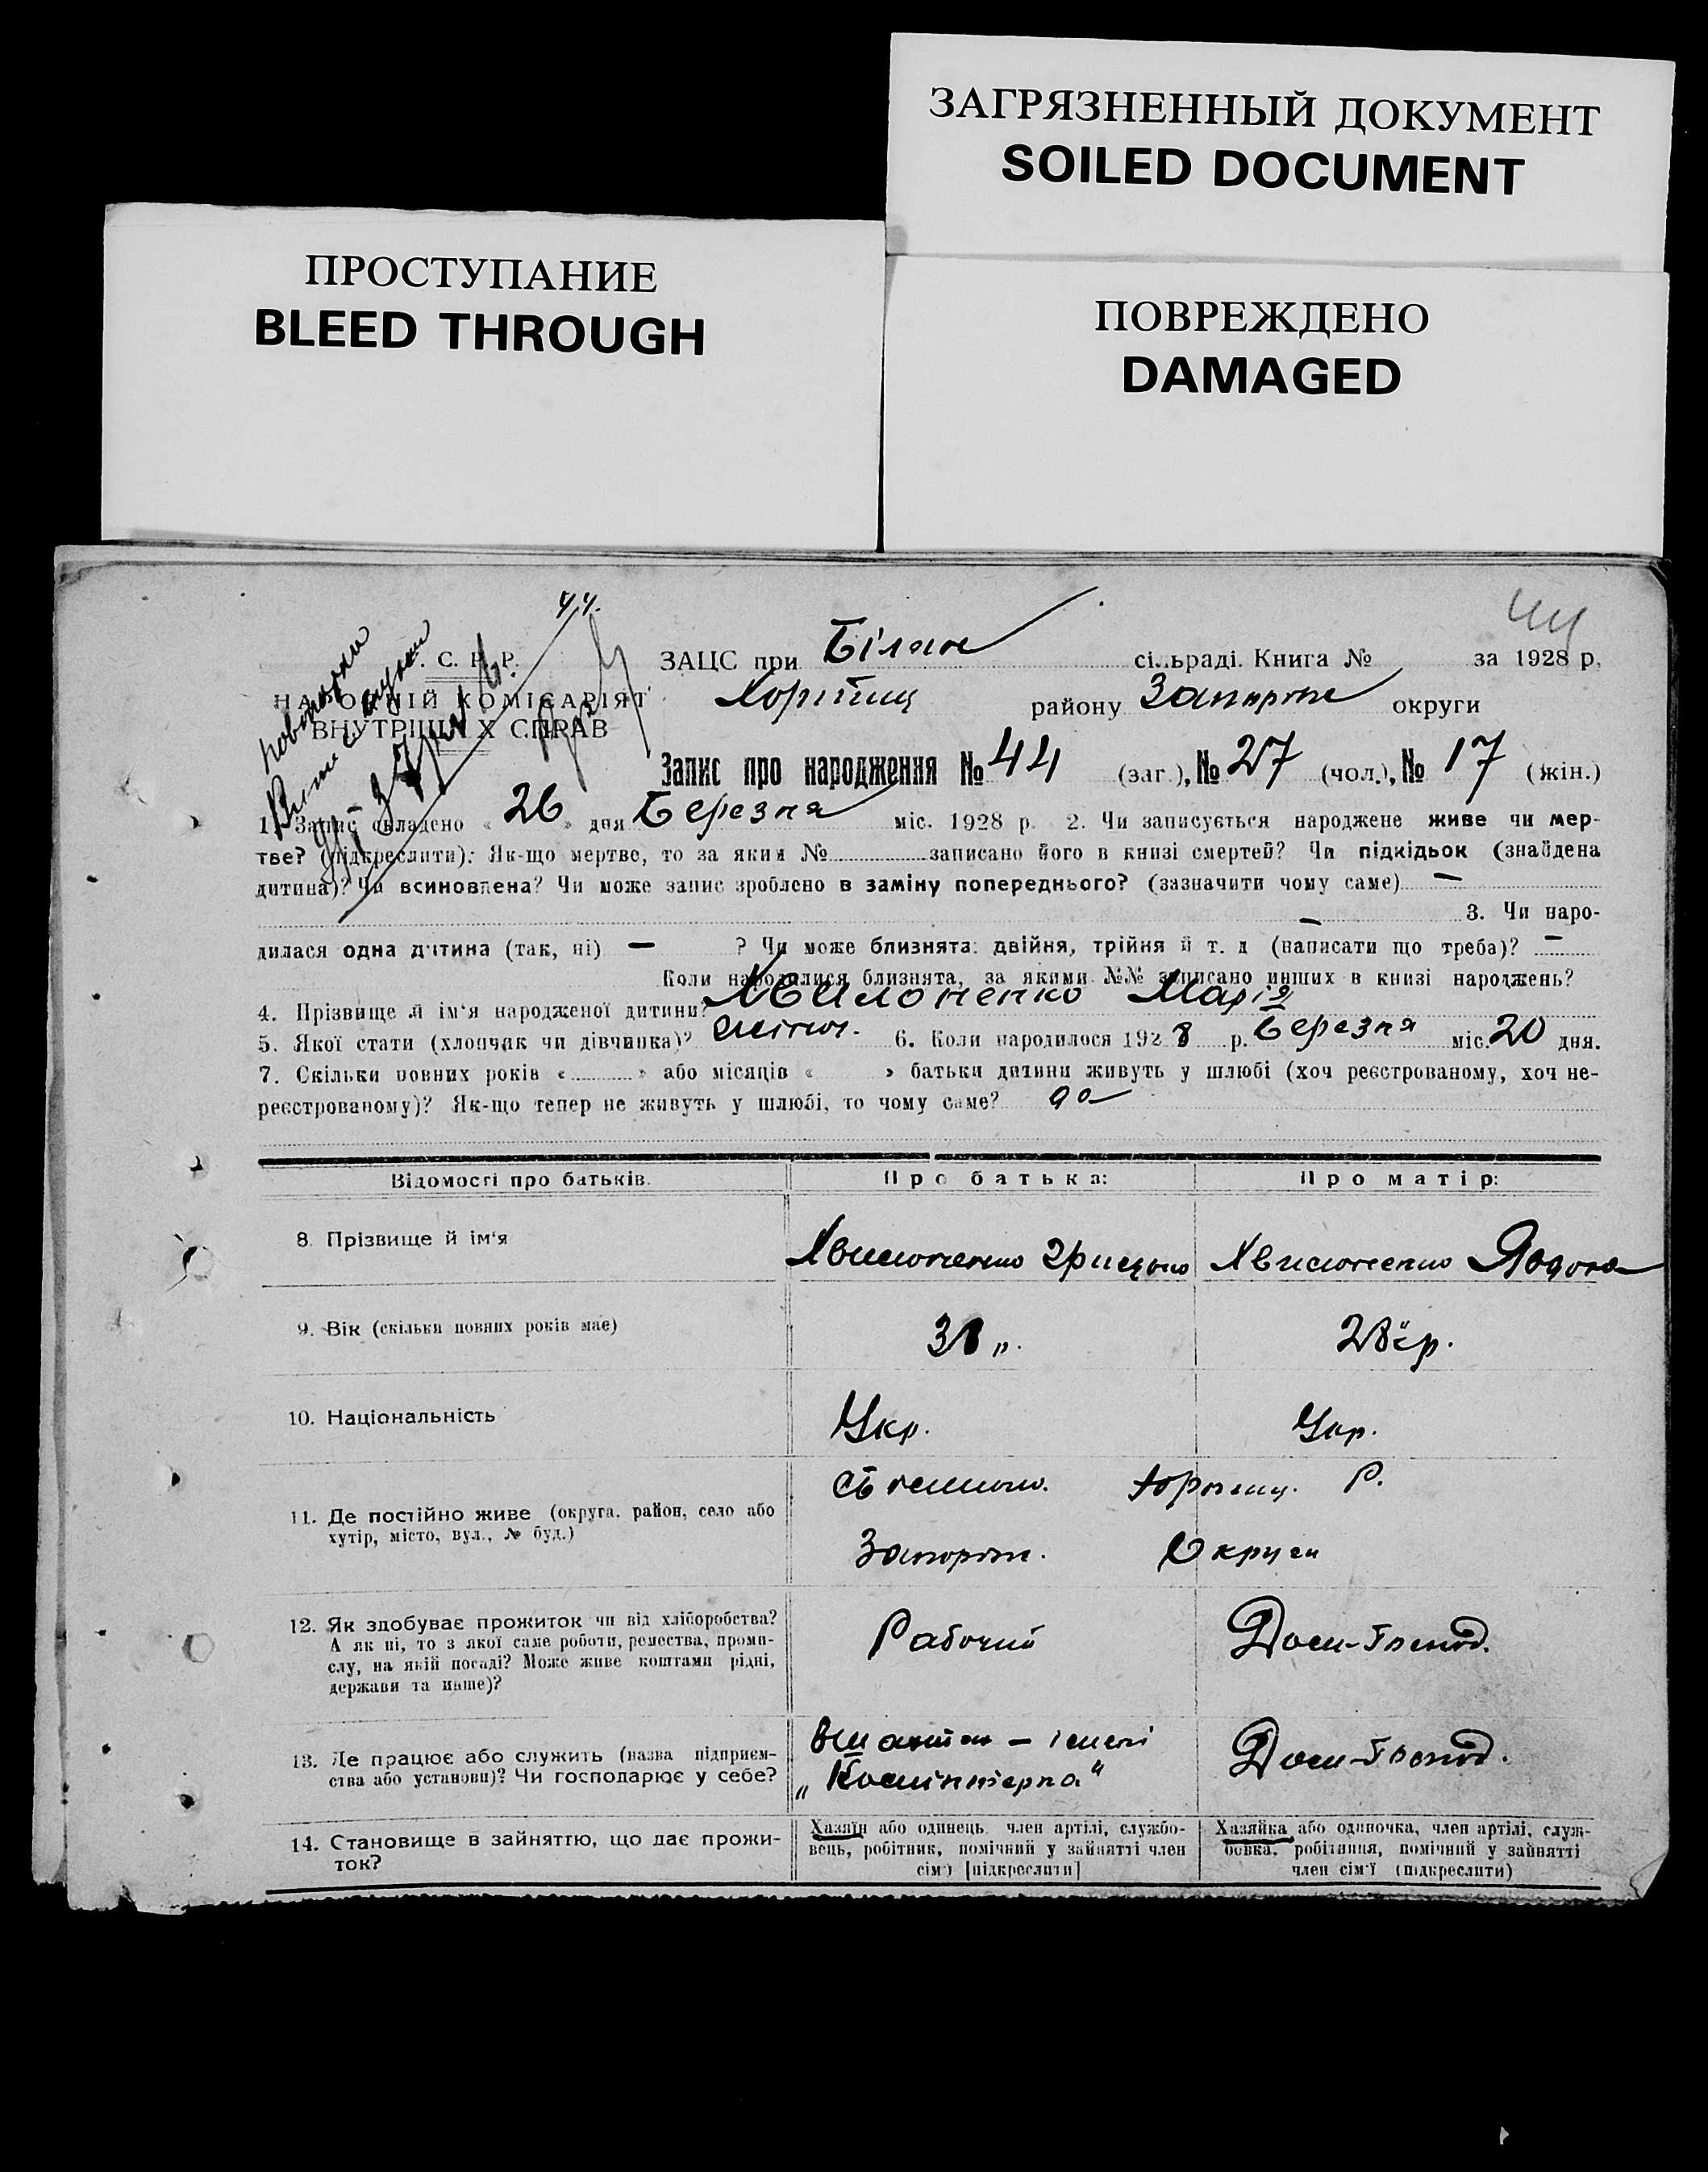 ЗАГРЯЗНЕННЫЙ ДОКУМЕНТ
SOILED DOCUMENT
ПРОСТУПАНИЕ
BLEED THROUGH
ПОВРЕЖДЕНО
DAMAGED
44
. С. Р. Р.
НА ОДНІЙ КОМІСАРІЯТ
ВНУТРІШНІХ СПРАВ
ЗАЦС при Білян сільраді. Книга № за 1928 р.
Хортиц району Запоріж округи
Запис про народження № 44 (заг.), № 27 (чол.), № 17 (жін.)
1. Запис складено « 26 » дня Березня міс. 1928 р. 2. Чи записується народжене живе чи мер-
тве? (підкреслити): Як-що мертве, то за яким № записано його в книзі смертей? Чи підкідьок (знайдена
дитина)? Чи всиновлена? Чи може запис зроблено в заміну попереднього? (зазначити чому саме) —
— 3. Чи наро-
дилася одна дитина (так, ні) — ? Чи може близнята: двійня, трійня й т. д (написати що треба)? —
Коли народилися близнята, за якими №№ записано инших в книзі народжень?
4. Прізвище й ім'я народженої дитини? Хвилоненко Марія
5. Якої стати (хлопчик чи дівчинка)? 6. Коли народилося 1928 р. Березня міс. 20 дня.
7. Скільки повних років «» або місяців «» батьки дитини живуть у шлюбі (хоч реєстрованому, хоч не-
реєстрованому)? Як-що тепер не живуть у шлюбі, то чому саме?
Відомості про батьків.
Про батька:
Про матір:
8. Прізвище й ім'я
Хвилоненко Грицько
Хвилоненко Явдоха
9. Вік (скільки повних років має)
28 р.
10. Національність
Укр.
Укр.
11. Де постійно живе (округа, район, село або
хутір, місто, вул., № буд.)
Хортиц. Р.
Запоріж. Округи
12. Як здобуває прожиток чи від хліборобства?
А як ні, то з якої саме роботи, ремества, проми-
слу, на якій посаді? Може живе коштами рідні,
держави та инше)?
Рабочий
Дом-Господ.
13. Де працює або служить (назва підприєм-
ства або установи)? Чи господарює у себе?
імені
„Комінтерна"
Дом-Господ.
14. Становище в зайняттю, що дає прожи-
ток?
Хазяїн або одинець, член артілі, службо-
вець, робітник, помічний у зайнятті член
сім'ї [підкреслити]
Хазяйка або одиночка, член артілі, служ-
бовка, робітниця, помічний у зайнятті
член сім'ї (підкреслити)